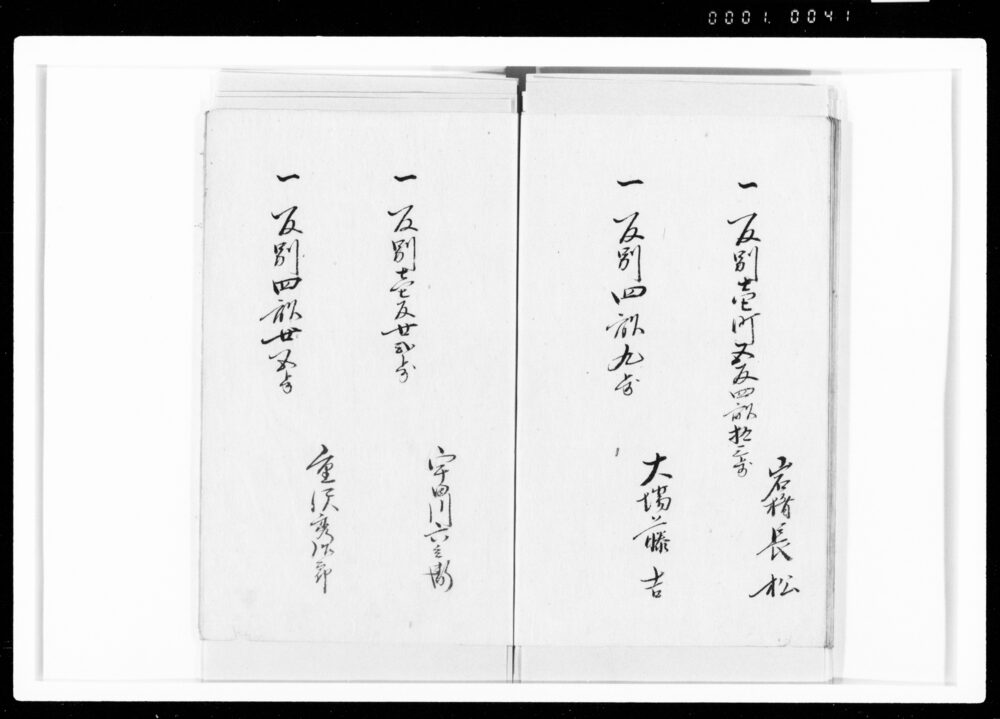 0001. 0041
一反別壱町五反四畝拾三歩
岩楯長松
一反別四畝九歩
大場藤吉
一反別壱反廿弐歩
宇田川六兵衛
一反別四畝廿五歩
重